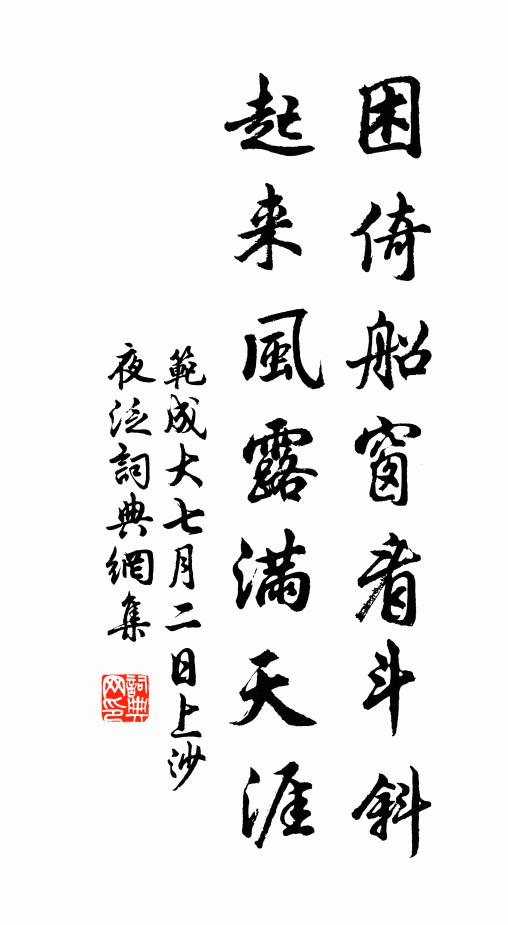 困倚船窗看斗斜
起来風露滿天涯
範成大七月二日上沙
夜泛詞典網集
詞典网印